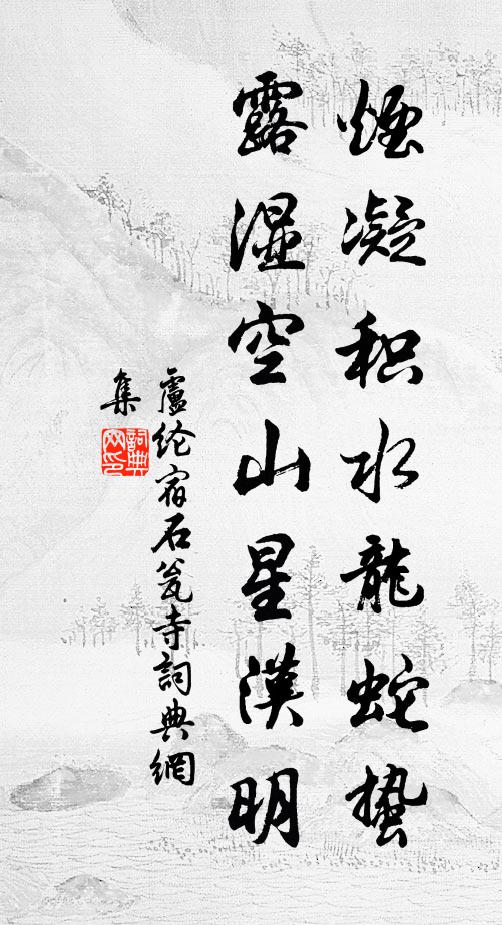 煙凝积水龍蛇蟄
露濕空山星漢明
盧纶宿石瓮寺詞典網
集
詞典
网印